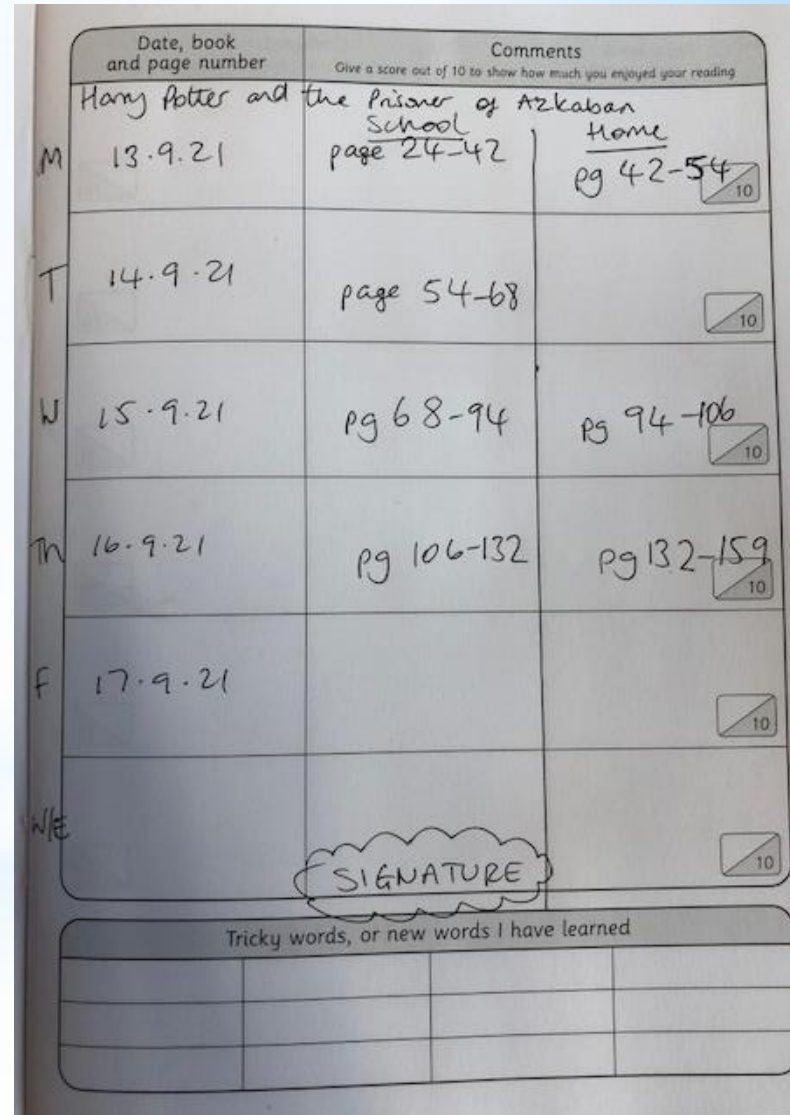 Date, book
and page number
Comments
Give a score out of 10 to show how much you enjoyed your reading
Harry Potter and the Prisoner of Azkaban
School Home
M 13.9.21 page 24-42 pg 42-54
10
T 14.9.21 page 54-68
10
W 15.9.21 pg 68-94 pg 94-106
10
Th 16.9.21 pg 106-132 pg 132-159
10
F 17.9.21
10
W/E
10
SIGNATURE
Tricky words, or new words I have learned